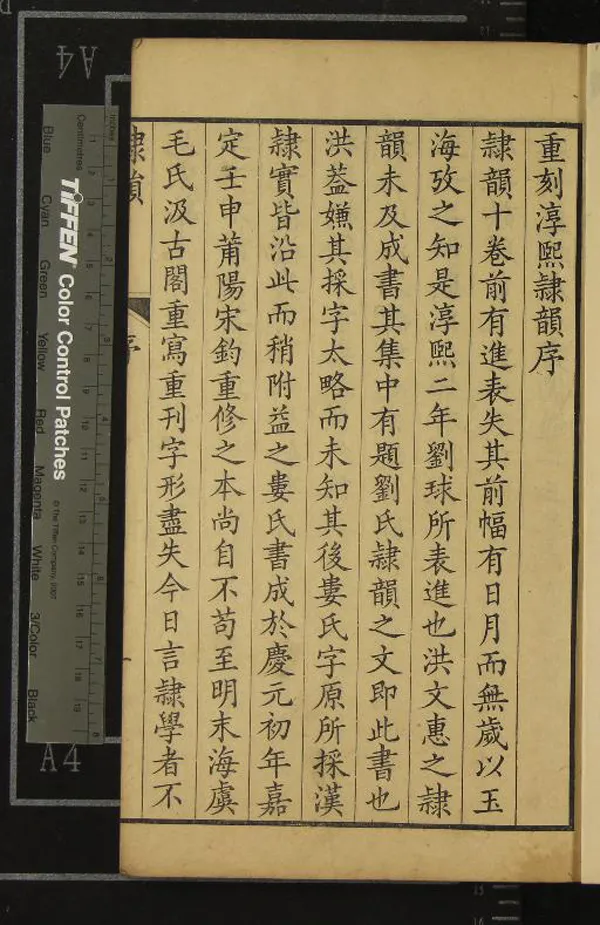 重刻淳熙隸韻序
隸韻十卷前有進表失其前幅有日月而無歲以玉
海攷之知是淳熙二年劉球所表進也洪文惠之隸
韻未及成書其集中有題劉氏隸韻之文即此書也
洪葢嫌其採字太略而未知其後婁氏字原所採漢
隸實皆沿此而稍附益之婁氏書成於慶元初年嘉
定壬申莆陽宋鈞重修之本尚自不苟至明末海虞
毛氏汲古閣重寫重刊字形盡失今日言隸學者不
序
一
A4
A4
Centimetres
Inches
TIFFEN Color Control Patches
© The Tiffen Company, 2007
Blue
Cyan
Green
Yellow
Red
Magenta
White
3/Color
Black